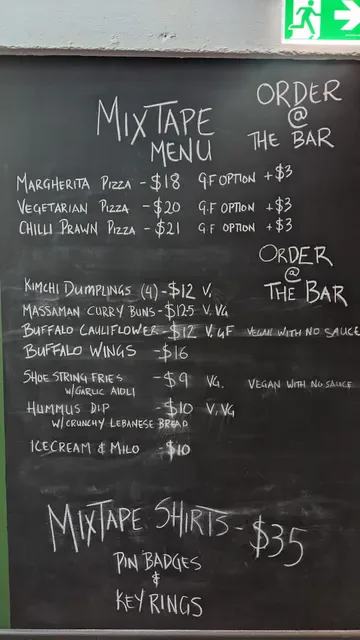 ORDER
@
THE BAR
MIXTAPE
MENU
MARGHERITA PIZZA - $18 G.F OPTION +$3
VEGETARIAN PIZZA - $20 G.F OPTION +$3
CHILLI PRAWN PIZZA - $21 G.F OPTION +$3
ORDER
@
THE BAR
KIMCHI DUMPLINGS (4) - $12 V,
MASSAMAN CURRY BUNS - $12.5 V. VG
BUFFALO CAULIFLOWER - $12 V, GF VEGAN WITH NO SAUCE
BUFFALO WINGS - $16
SHOE STRING FRIES - $9 VG. VEGAN WITH NO SAUCE
W/GARLIC AIOLI
HUMMUS DIP - $10 V. VG
W/CRUNCHY LEBANESE BREAD
ICECREAM & MILO - $10
MIXTAPE SHIRTS - $35
PIN BADGES
&
KEY RINGS